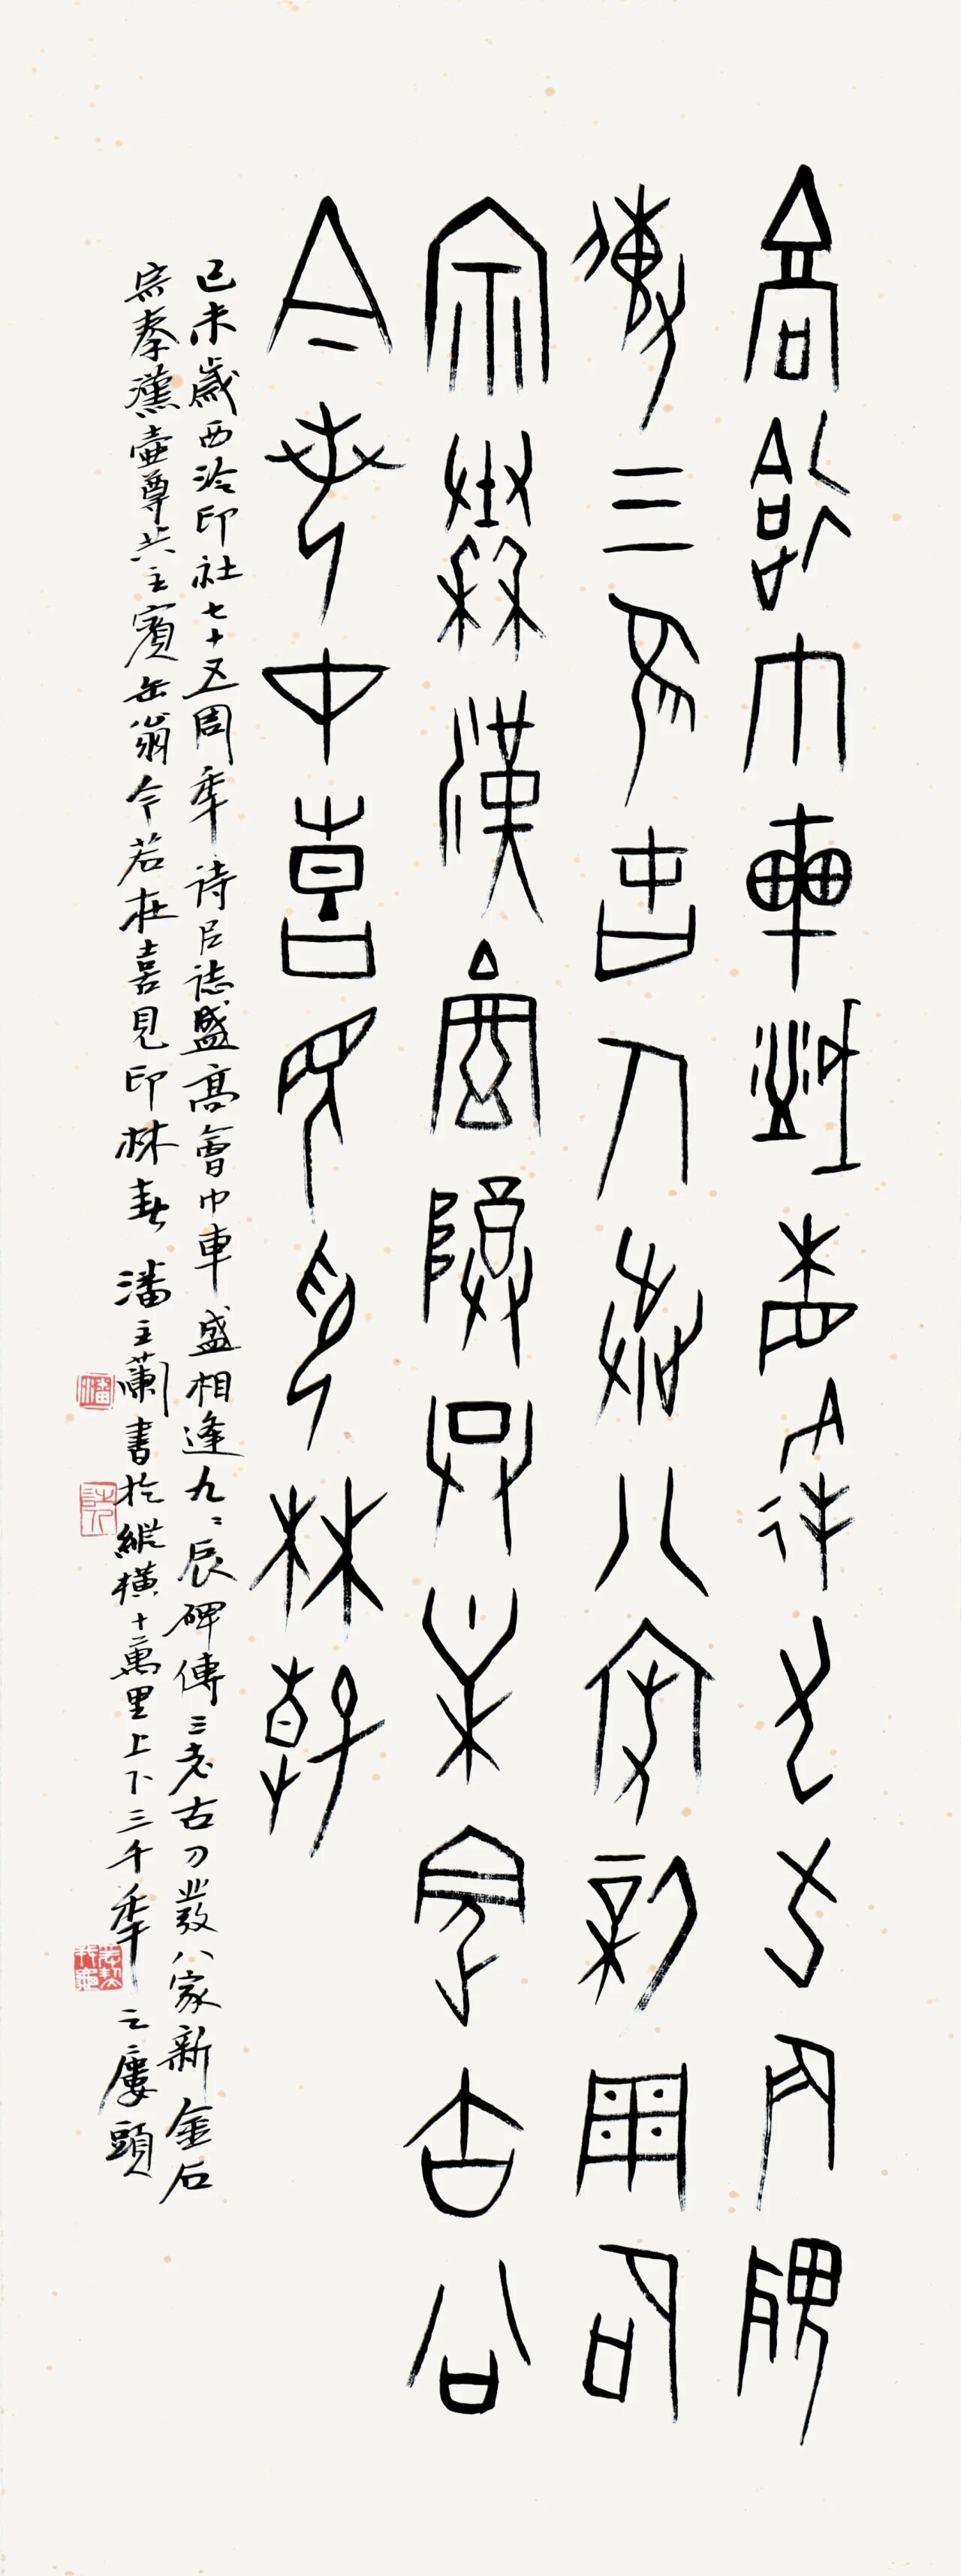 高會巾車盛相逢九九辰碑
傳三老古刀發八家新周石
宗秦漢壺尊共主賓缶公
今若在喜見印林春
己未歲西泠印社七十五周年詩以誌盛高會巾車盛相逢九〻辰碑傳三老古刀發八家新金石
宗秦漢壺尊共主賓缶翁今若在喜見印林春潘主蘭書於縱橫十萬里上下三千年之廔頭